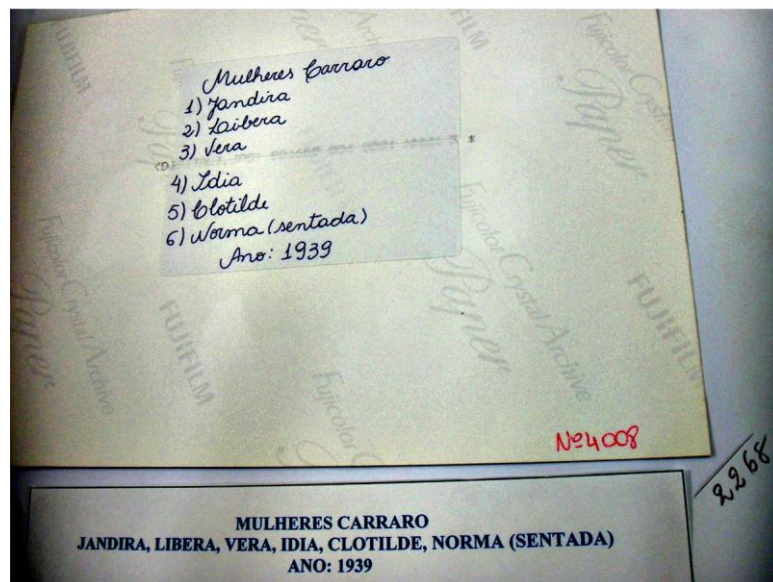 Mulheres Carraro
1) Jandira
2) Libera
3) Vera
4) Idia
5) Clotilde
6) Norma (sentada)
Ano: 1939
FUJIFILM
Fujicolor Crystal Archive
Paper
Nº 4008
2268
MULHERES CARRARO
JANDIRA, LIBERA, VERA, IDIA, CLOTILDE, NORMA (SENTADA)
ANO: 1939